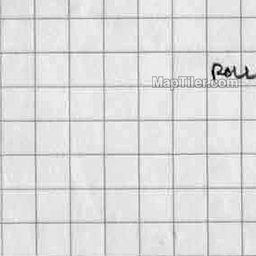 ROLL
MapTiler.com